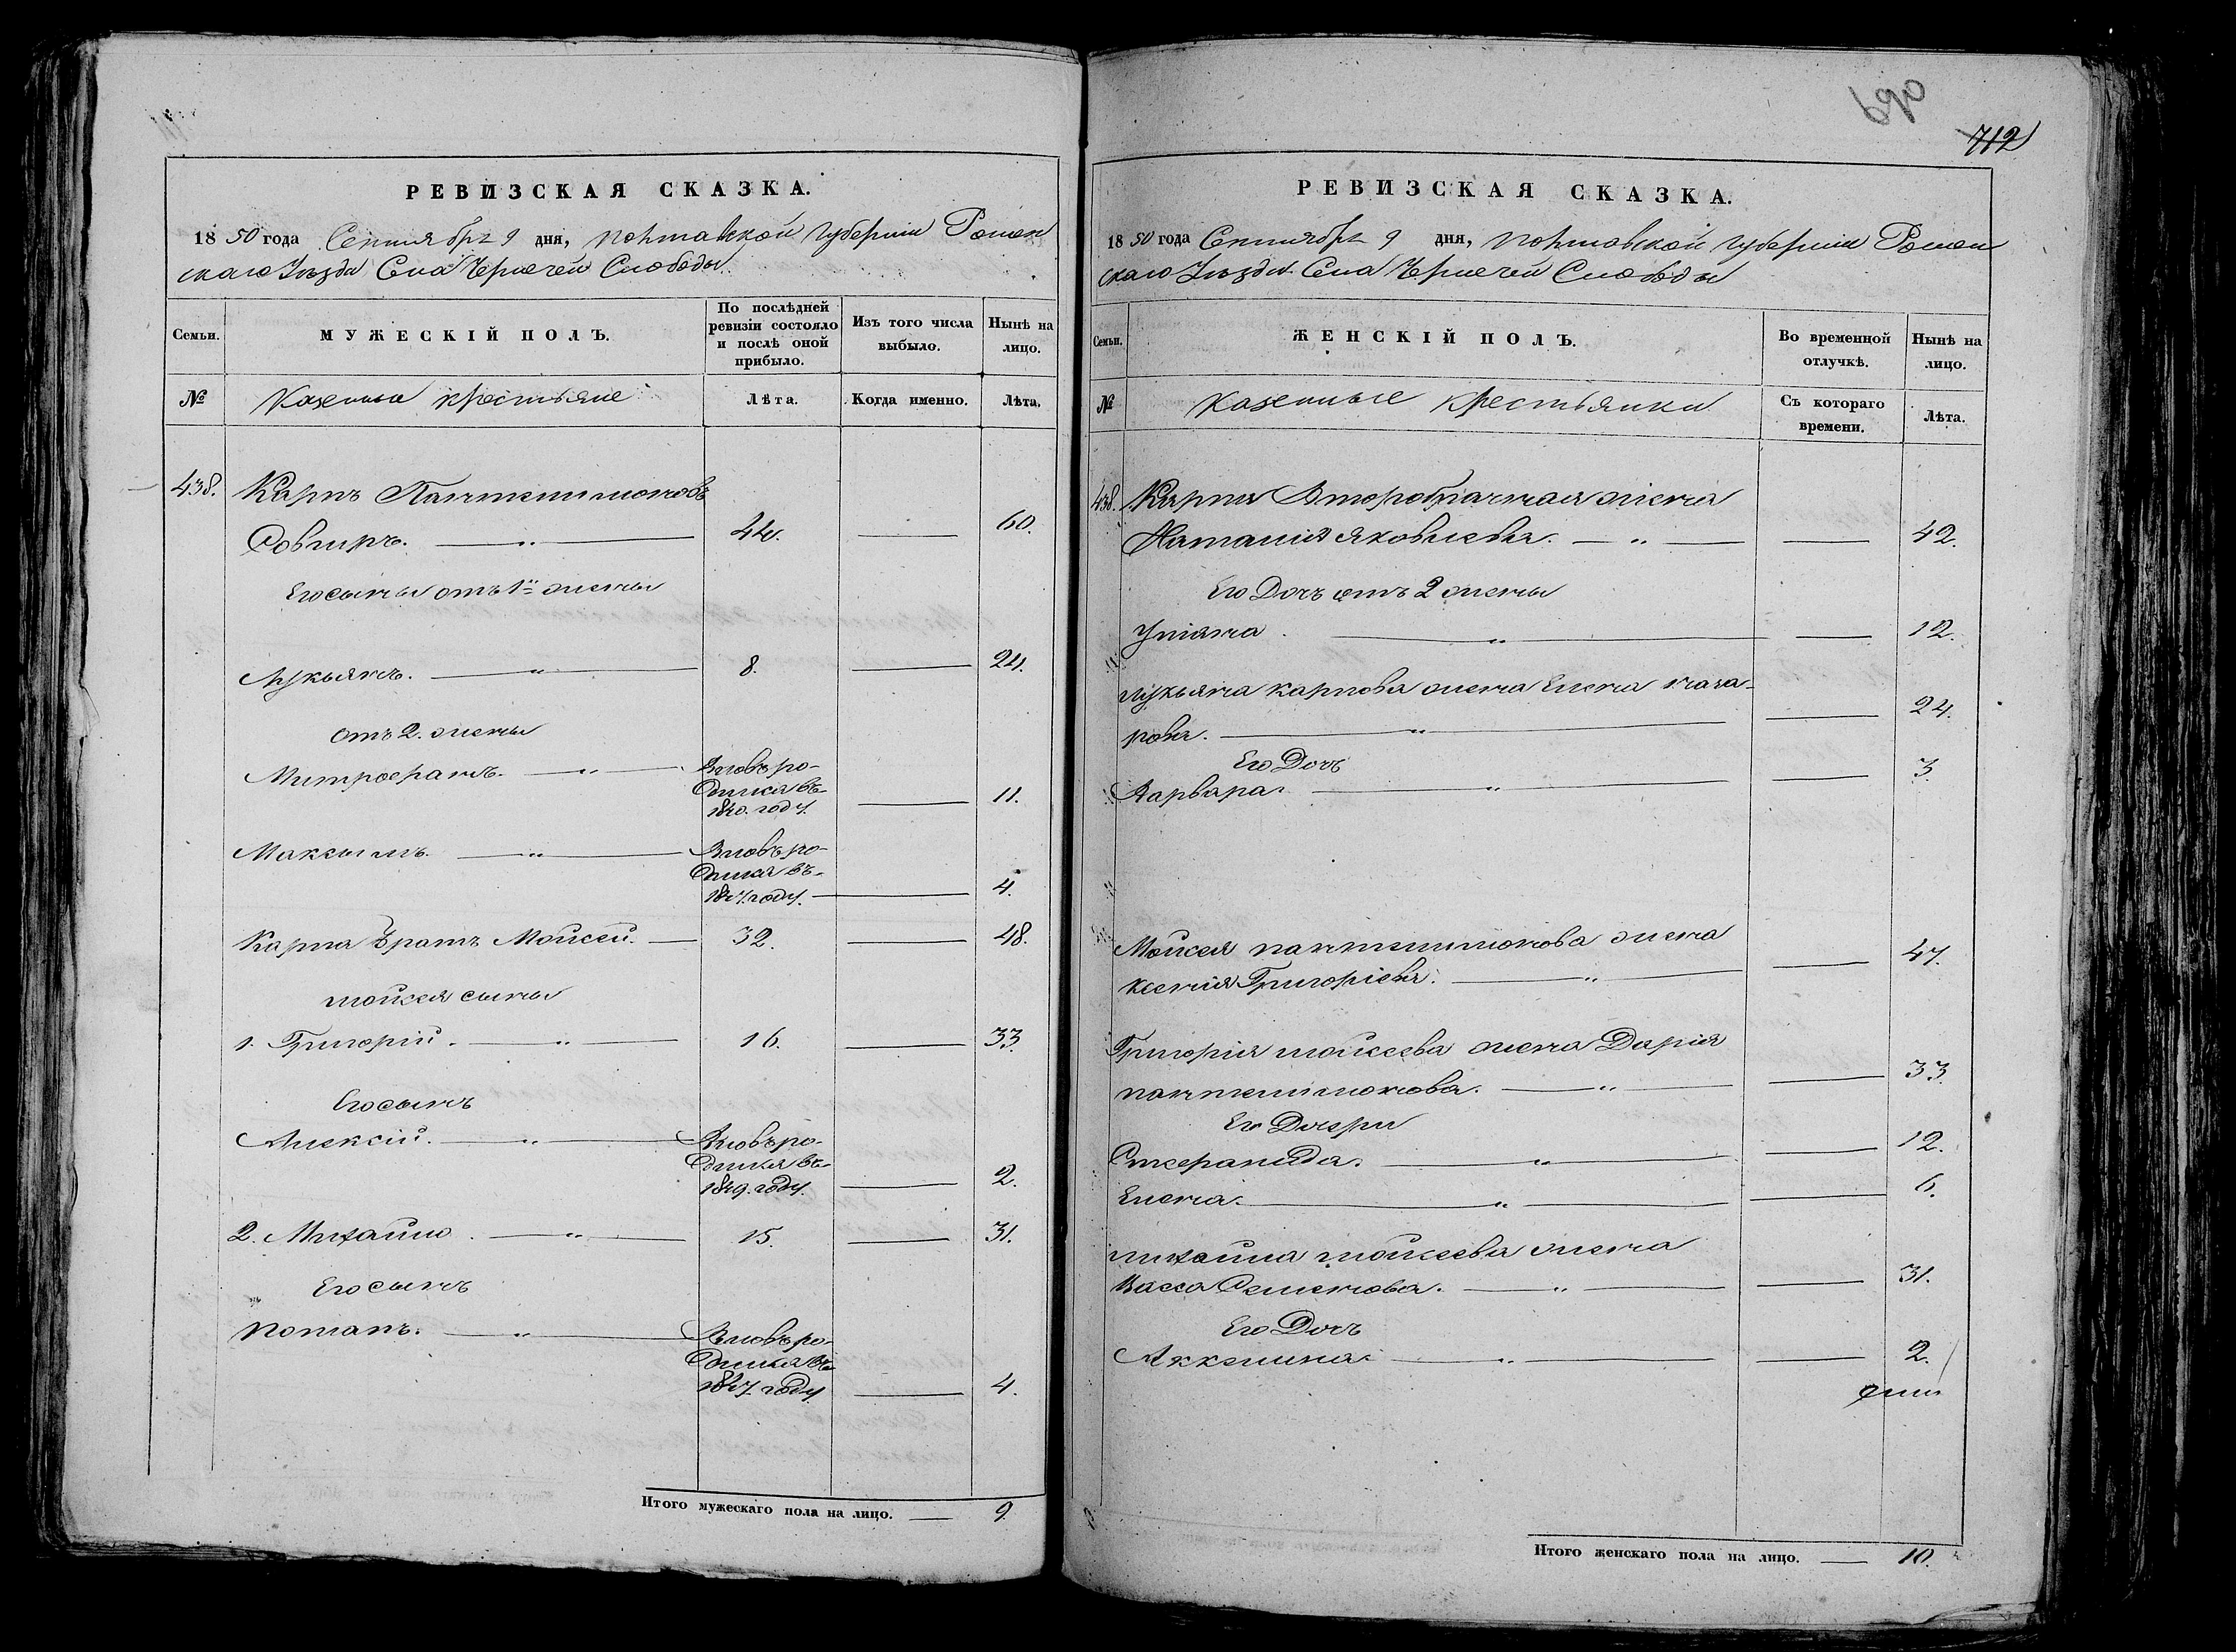 РЕВИЗСКАЯ СКАЗКА.
1850 года Сентября 9 дня, Полтавской Губернии Ромен
скаго Уезда Села Чернечей Слободы.
Семьи.
МУЖЕСКІЙ ПОЛЪ.
По послѣдней
ревизіи состояло
и послѣ оной
прибыло.
Изъ того числа
выбыло.
Нынѣ на
лицо.
№
Казенные крестьяне
Лѣта.
Когда именно.
Лѣта.
438. Карпъ Пантелимоновъ
44. 60.
Его сыны отъ 1й жены
Лукьянъ. 8. 24.
отъ 2. жены
Митрофанъ. Вновь ро-
дился въ
1840. году. 11.
Максимъ. Вновь ро-
дился въ
1847. году. 4.
Карпа братъ Мойсей. 32. 48.
Мойсея сыны
1. Григорій. 16. 33.
Его сынъ
Алексій. Вновь ро-
дился въ
1849. году. 2.
2. Михайло. 15. 31.
Его сынъ
Потапъ. Вновь ро-
дился въ
1847. году 4.
Итого мужескаго пола на лицо. 9.
690
712
РЕВИЗСКАЯ СКАЗКА.
1850 года Сентября 9 дня, Полтавской Губерніи Ромен
скаго Уезда Села Чернечей Слободы
Семьи.
ЖЕНСКІЙ ПОЛЪ.
Во временной
отлучкѣ.
Нынѣ на
лицо.
№
Казенные крестьянки
Съ котораго
времени.
Лѣта.
438. Карпа Второбрачная жена
Наталія Яковлева. 42.
Его Дочь отъ 2 жены
Уліяна. 12.
Лукьяна Карпова жена Елена Наза-
рова. 24.
Его Дочь
Варвара. 3.
Мойсея Пантелимонова жена
Ксенія Григоріева. 47.
Григорія Мойсеева жена Дарія
Пантелимонова. 33.
Его Дочери
Степанида. 12.
Елена. 6.
Михайла Мойсеева жена
Васса Семенова. 31.
Его Дочь
Аккелина. 2.
Итого женскаго пола на лицо. 10.